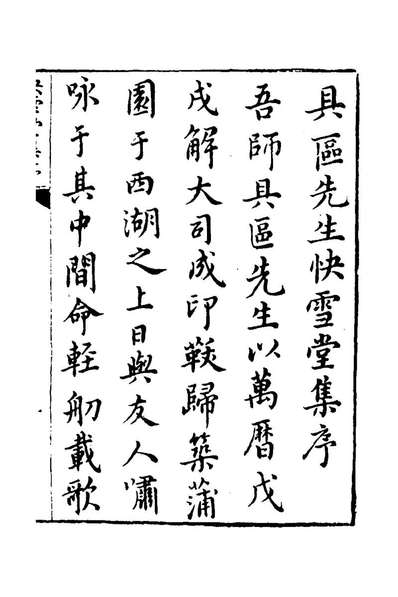 具區先生快雪堂集序
吾師具區先生以萬曆戊
戌解大司成印鞍歸築蒲
園于西湖之上日與友人嘯
咏于其中間命輕舠載歌